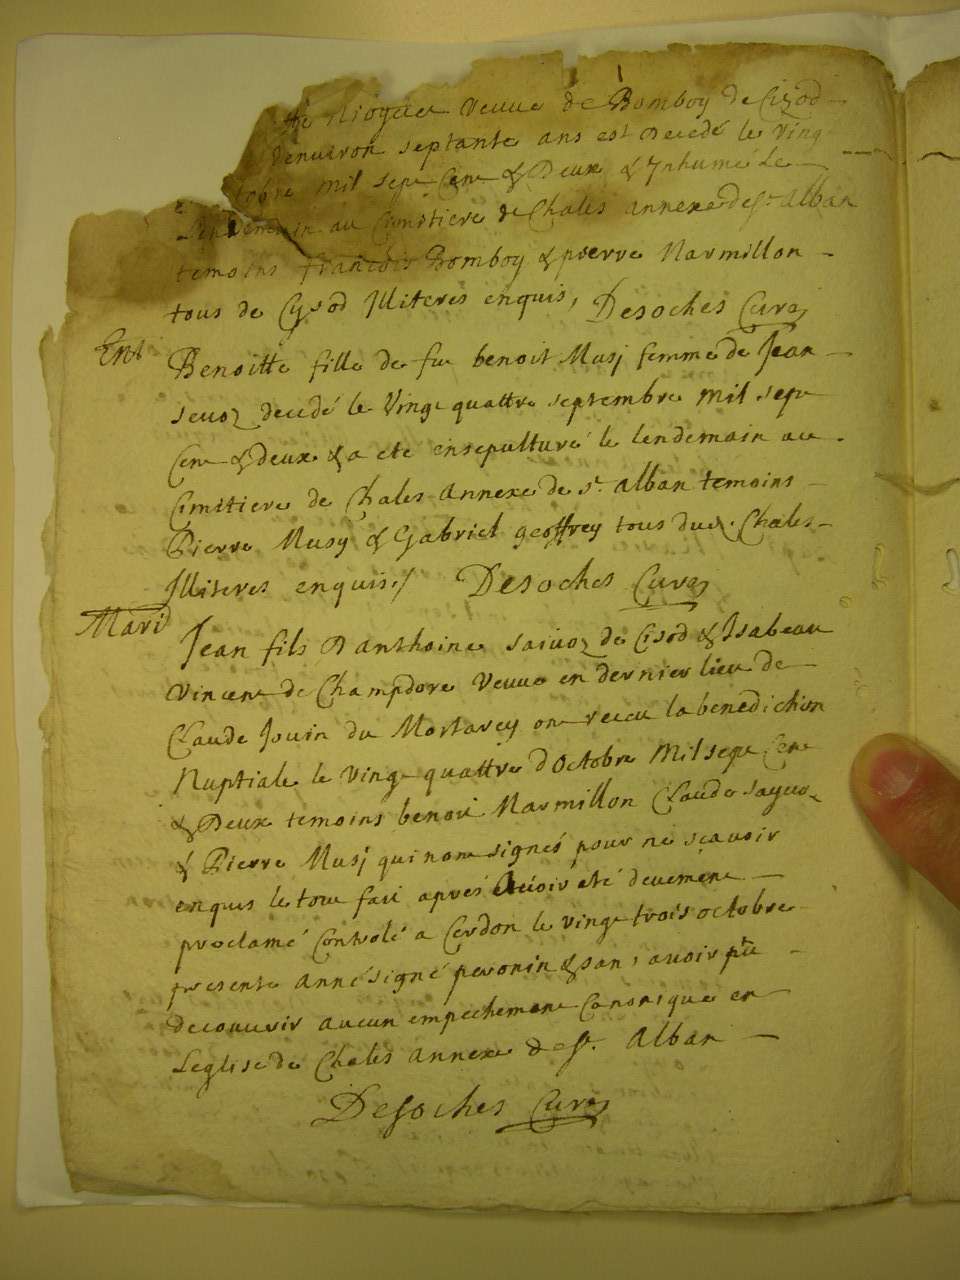 Veuve de Bomboy de Cizod
denuiron septante ans est decedé le Ving
tobre mil sept Cent & Deux & Inhumé Le
Lendemain au Cimitiere de Chales annexe de St Alban
temoins francois Bomboy & pierre Marmillon
tous de Cysod Illiteres enquis, Desoches Curé
Ent
Benoitte fille de fu benoit Musj femme de Jean
seuoz decedé le Vingt quattre septembre mil sept
Cent & deux & a ete ensepulturé le lendemain au
Cimitiere de Chales Annexe de St Alban temoins
Pierre Musy & Gabriel geoffrey tous due Chales
Illiteres enquis./ Desoches Curé
Mari
Jean fils D anthoine saiuoz de Cisod & Isabeau
Vincent de Champdore Veuue en dernier lieu de
Claude Jouin du Mortarey ont receu la benediction
Nuptiale le Vingt quattre d Octobre Mil sept Cent
& Deux temoins benoit Marmillon Claude sayuoz
& Pierre Musj qui nont signés pour ne sçauoir
enquis le tout fait aprés Auoir eté deuement
proclamé Controlé a Cerdon le vingt trois octobre
presente année signé peronin & sans auoir pu
decouurir aucun empechement Canonique en
Leglise de Chales annexe de St. Alban
Desoches Curé